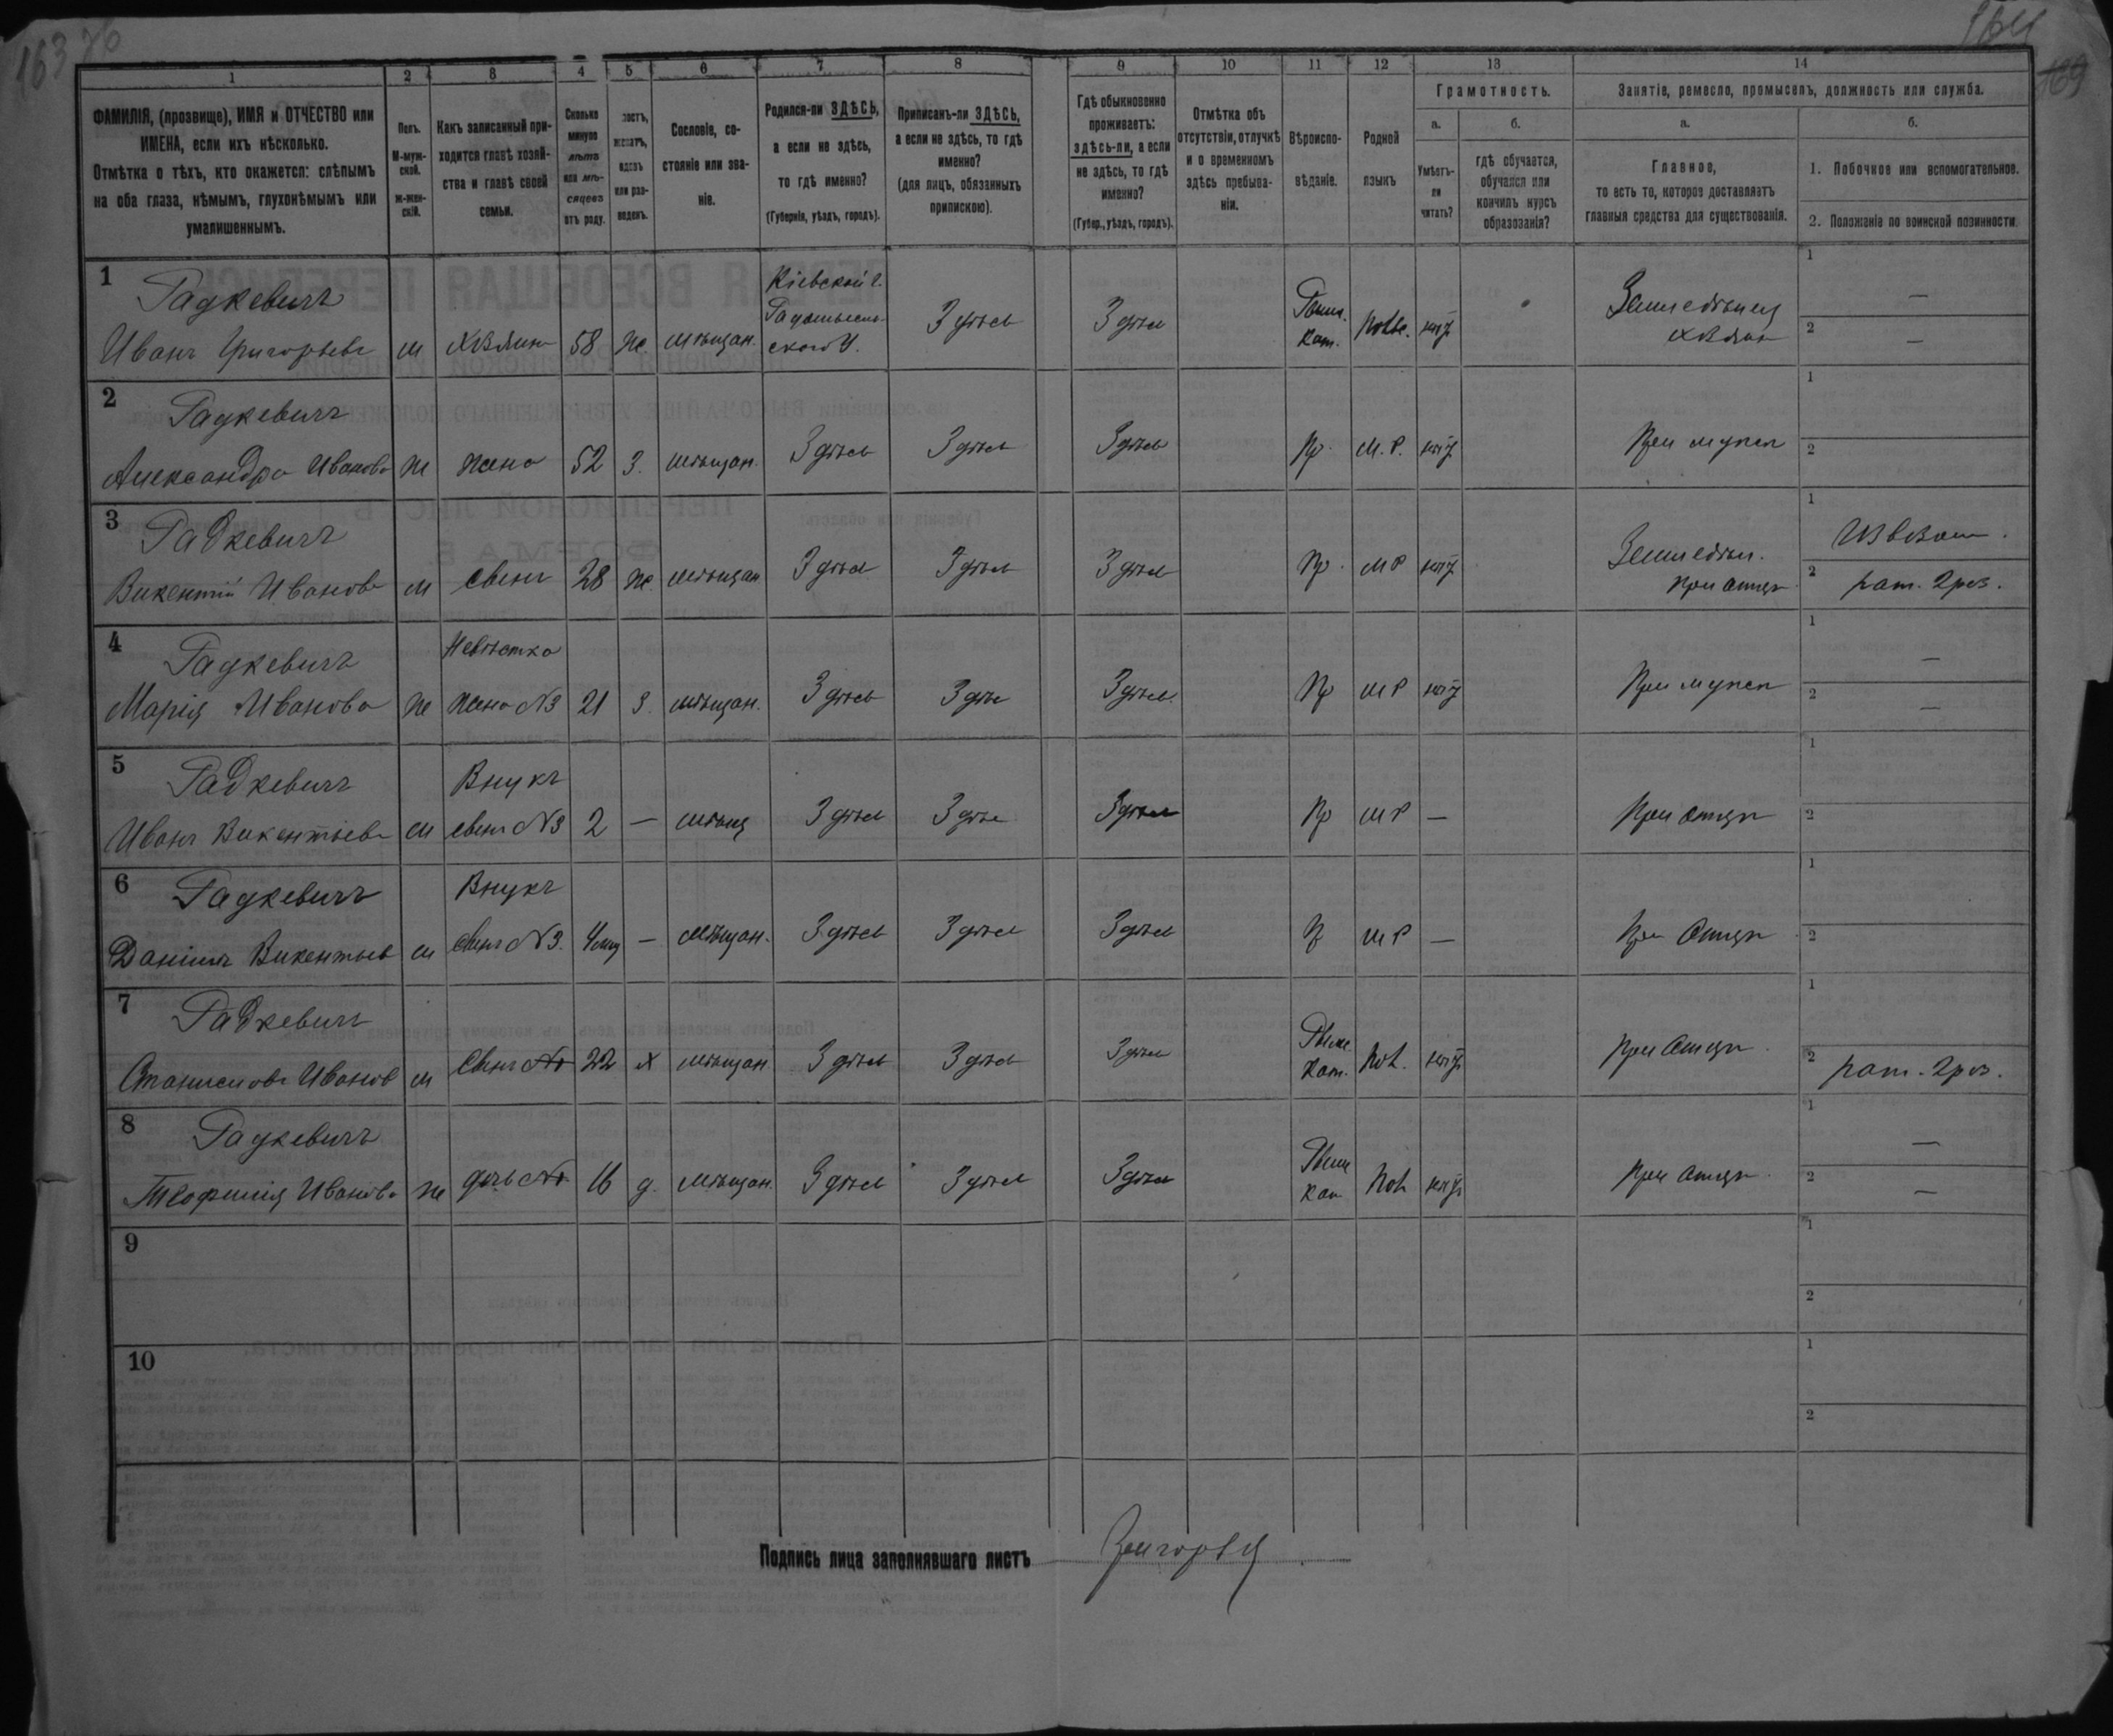 163 76
164
169
1
2
3
4
5
6
7
8
9
10
11
12
13
14
ФАМИЛІЯ, (прозвище), ИМЯ и ОТЧЕСТВО или
ИМЕНА, если ихъ нѣсколько.
Отмѣтка о тѣхъ, кто окажется: слѣпымъ
на оба глаза, нѣмымъ, глухонѣмымъ или
умалишеннымъ.
Полъ.
М-муж-
ской.
Ж-жен-
скій.
Какъ записанный при-
ходится главѣ хозяй-
ства и главѣ своей
семьи.
Сколько
минуло
лѣтъ
или мѣ-
сяцевъ
отъ роду.
Холостъ,
женатъ,
вдовъ
или раз-
веденъ.
Сословіе, со-
стояніе или зва-
ніе.
Родился-ли ЗДѢСЬ,
а если не здѣсь,
то гдѣ именно?
(Губернія, уѣздъ, городъ).
Приписанъ-ли ЗДѢСЬ,
а если не здѣсь, то гдѣ
именно?
(для лицъ, обязанныхъ
припискою).
Гдѣ обыкновенно
проживаетъ:
здѣсь-ли, а если
не здѣсь, то гдѣ
именно?
(Губер., уѣздъ, городъ).
Отмѣтка объ
отсутствіи, отлучкѣ
и о временномъ
здѣсь пребыва-
ніи.
Вѣроиспо-
вѣданіе.
Родной
языкъ
Грамотность.
а.
Умѣетъ-
ли
читать?
б.
гдѣ обучается,
обучался или
кончилъ курсъ
образованія?
Занятіе, ремесло, промыселъ, должность или служба.
а.
Главное,
то есть то, которое доставляетъ
главныя средства для существованія.
б.
1. Побочное или вспомогательное.
2. Положеніе по воинской повинности.
1
Радкевичъ
Кіевской г.
Иванъ Григорьевъ м хозяинъ 58 ж. мѣщан. Здѣсь Здѣсь Рим. Кат. нѣтъ
1 —
2 —
2
Радкевичъ
Александра Иванова ж жена 52 з. мѣщан. Здѣсь Здѣсь Здѣсь Пр. М.Р. нѣтъ При мужѣ
1
2
3
Радкевичъ
Викентій Ивановъ м сынъ 28 ж. мѣщан Здѣсь Здѣсь Здѣсь Пр. М Р нѣтъ При отцѣ
1
2 рат. 2 раз.
4
Радкевичъ Невѣстка
Марія Иванова ж жена №3 21 з. мѣщан. Здѣсь Здѣсь Здѣсь Пр М Р нѣтъ При мужѣ
1 —
2 —
5
Радкевичъ Внукъ
Иванъ Викентіевъ м сынъ №3 2 — мѣщ Здѣсь Здѣсь Здѣсь Пр М Р — При отцѣ
1
2
6
Радкевичъ Внукъ
Даніилъ Викентьев м сынъ №3. 4 мц — мѣщан. Здѣсь Здѣсь Здѣсь М Р — При Отцѣ
1
2
7
Радкевичъ
Станиславъ Иванов м Сынъ №1 22 х мѣщан Здѣсь Здѣсь Здѣсь Рим. Кат. Пол. нѣтъ При Отцѣ
1
2 рат. 2 раз.
8
Радкевичъ
Теофилія Иванова ж дочь №1 16 д. мѣщан. Здѣсь Здѣсь Здѣсь Рим Кат Пол нѣтъ При отцѣ
1 —
2 —
9
1
2
10
1
2
Подпись лица заполнявшаго листъ